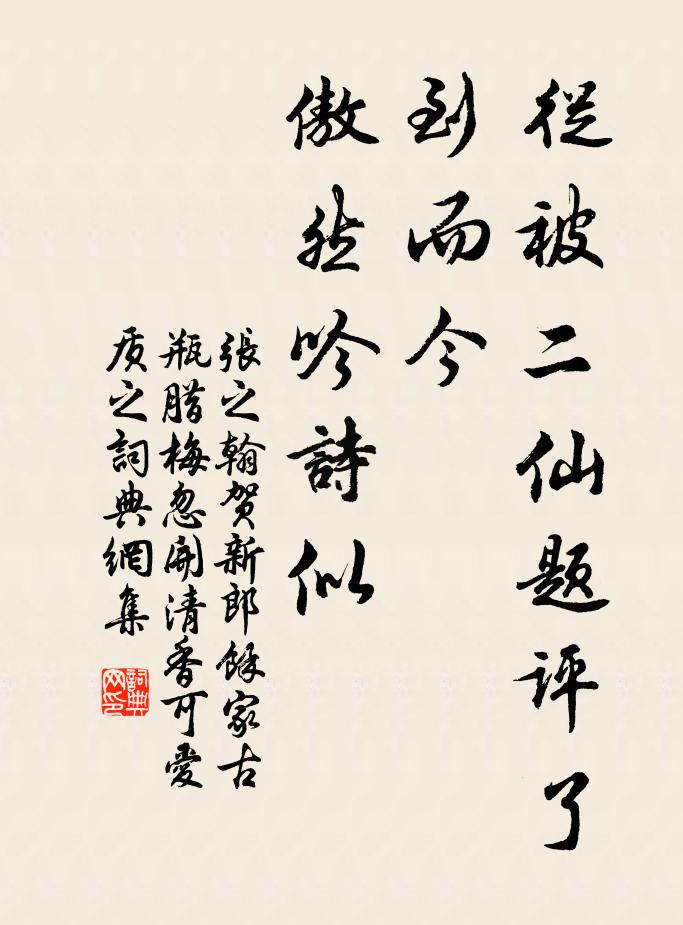 從被二仙題評了
到而今
傲然吟詩似
張之翰賀新郎餘家古
瓶腊梅忽開清香可愛
质之詞典網集
詞典
网印